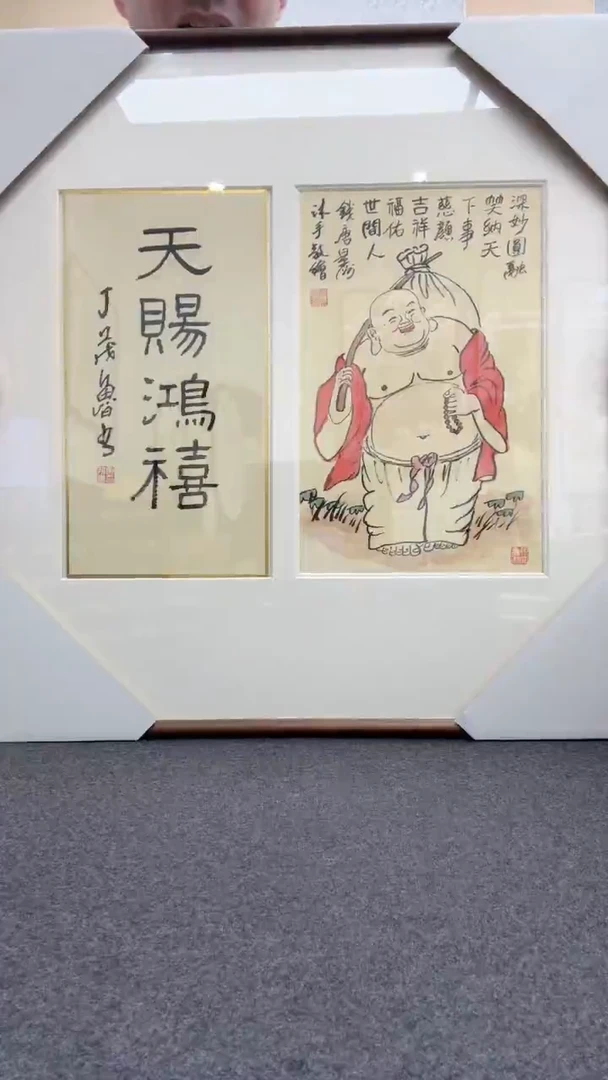 深妙圓融
納天
下事
慈顏
吉祥
福佑
世間人
錢唐
沐手敬繪
天賜鴻禧
丁茂魯书